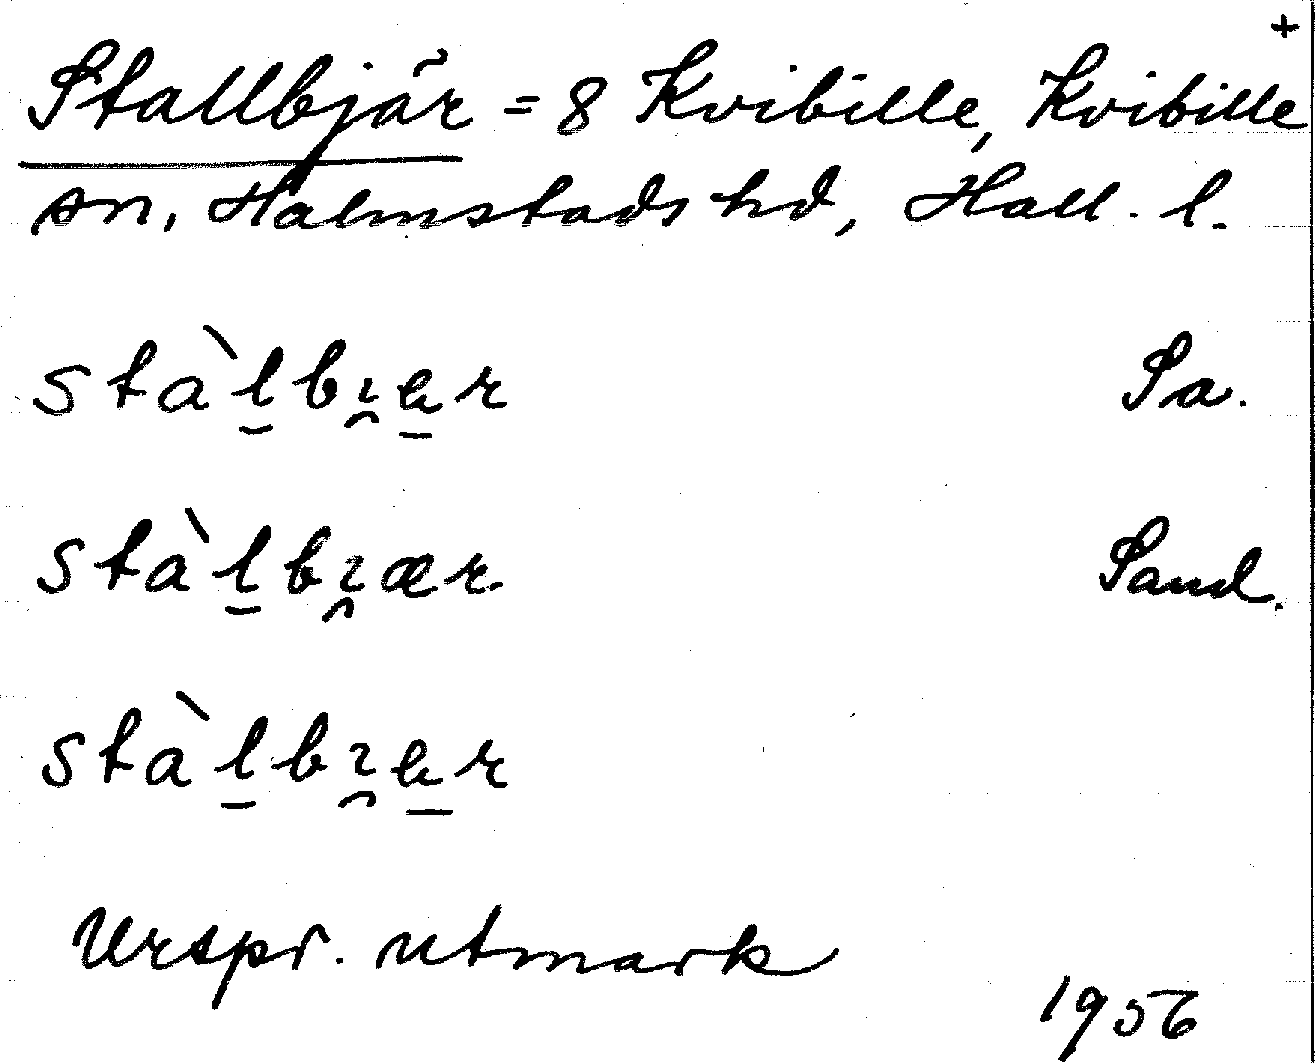 +
Stallbjär = 8 Kvibille, Kvibille
sn, Halmstads hd, Hall. l.
stàl̠bı̯a̠r Sa.
stàl̠bı̯ær. Sand.
stàl̠bı̯a̠r
Urspr. utmark
1956